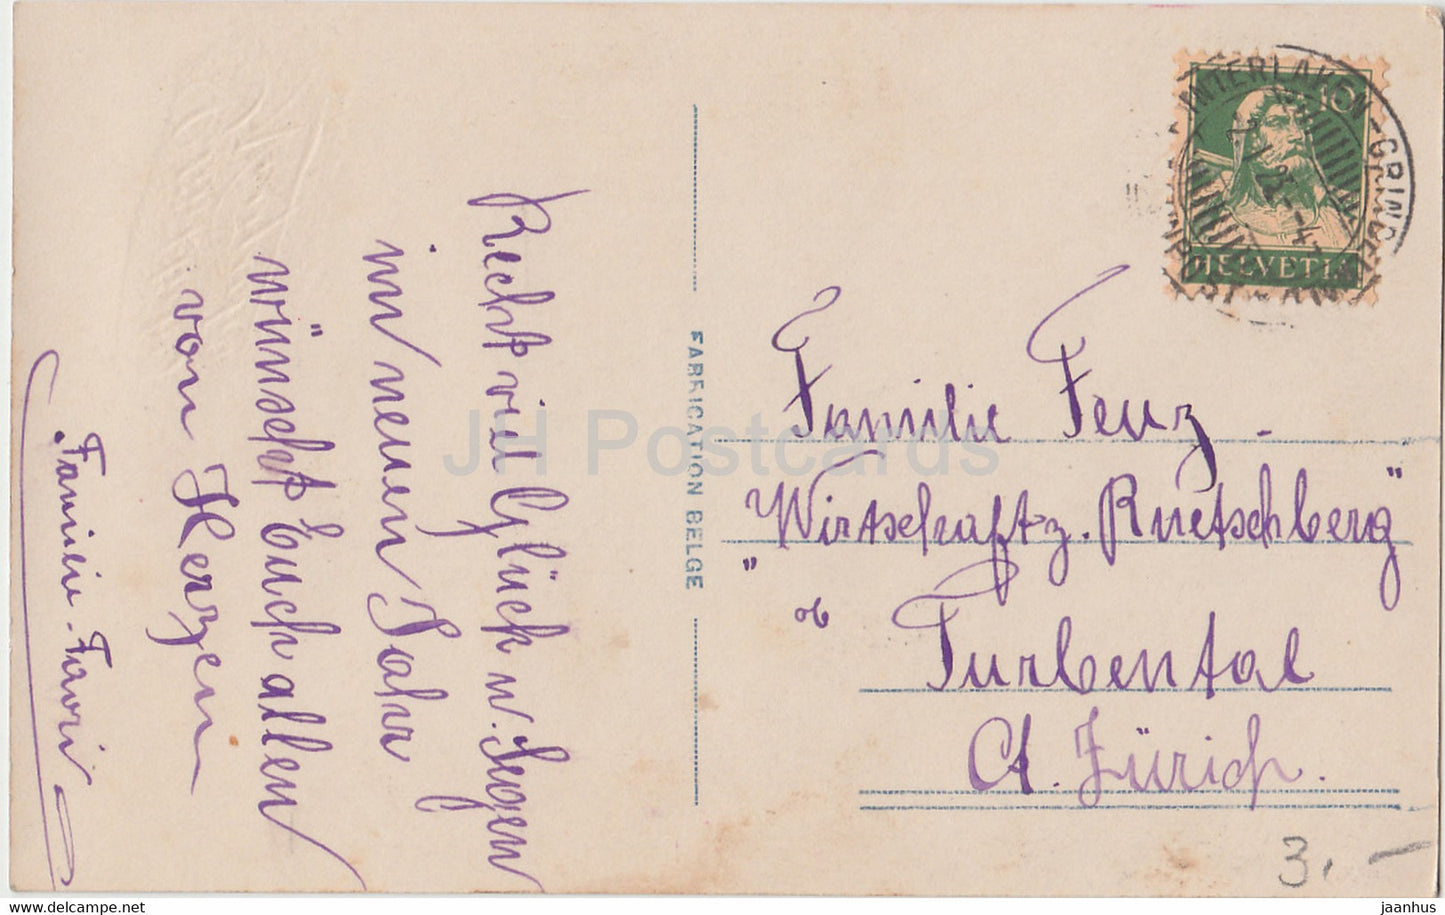 Recht viel Glück u. Segen
im neuen Jahr
wünscht Euch allen
von Herzen
Familie Favri
FABRICATION BELGE
INTERLAKEN-GRINDEL
10
HELVETIA
Familie Feuz.
"Wirtschaft z. Ruetschberg"
ob Turbental
Ct. Zürich.
3.-
JH Postcards
www.delcampe.net
jaanhus